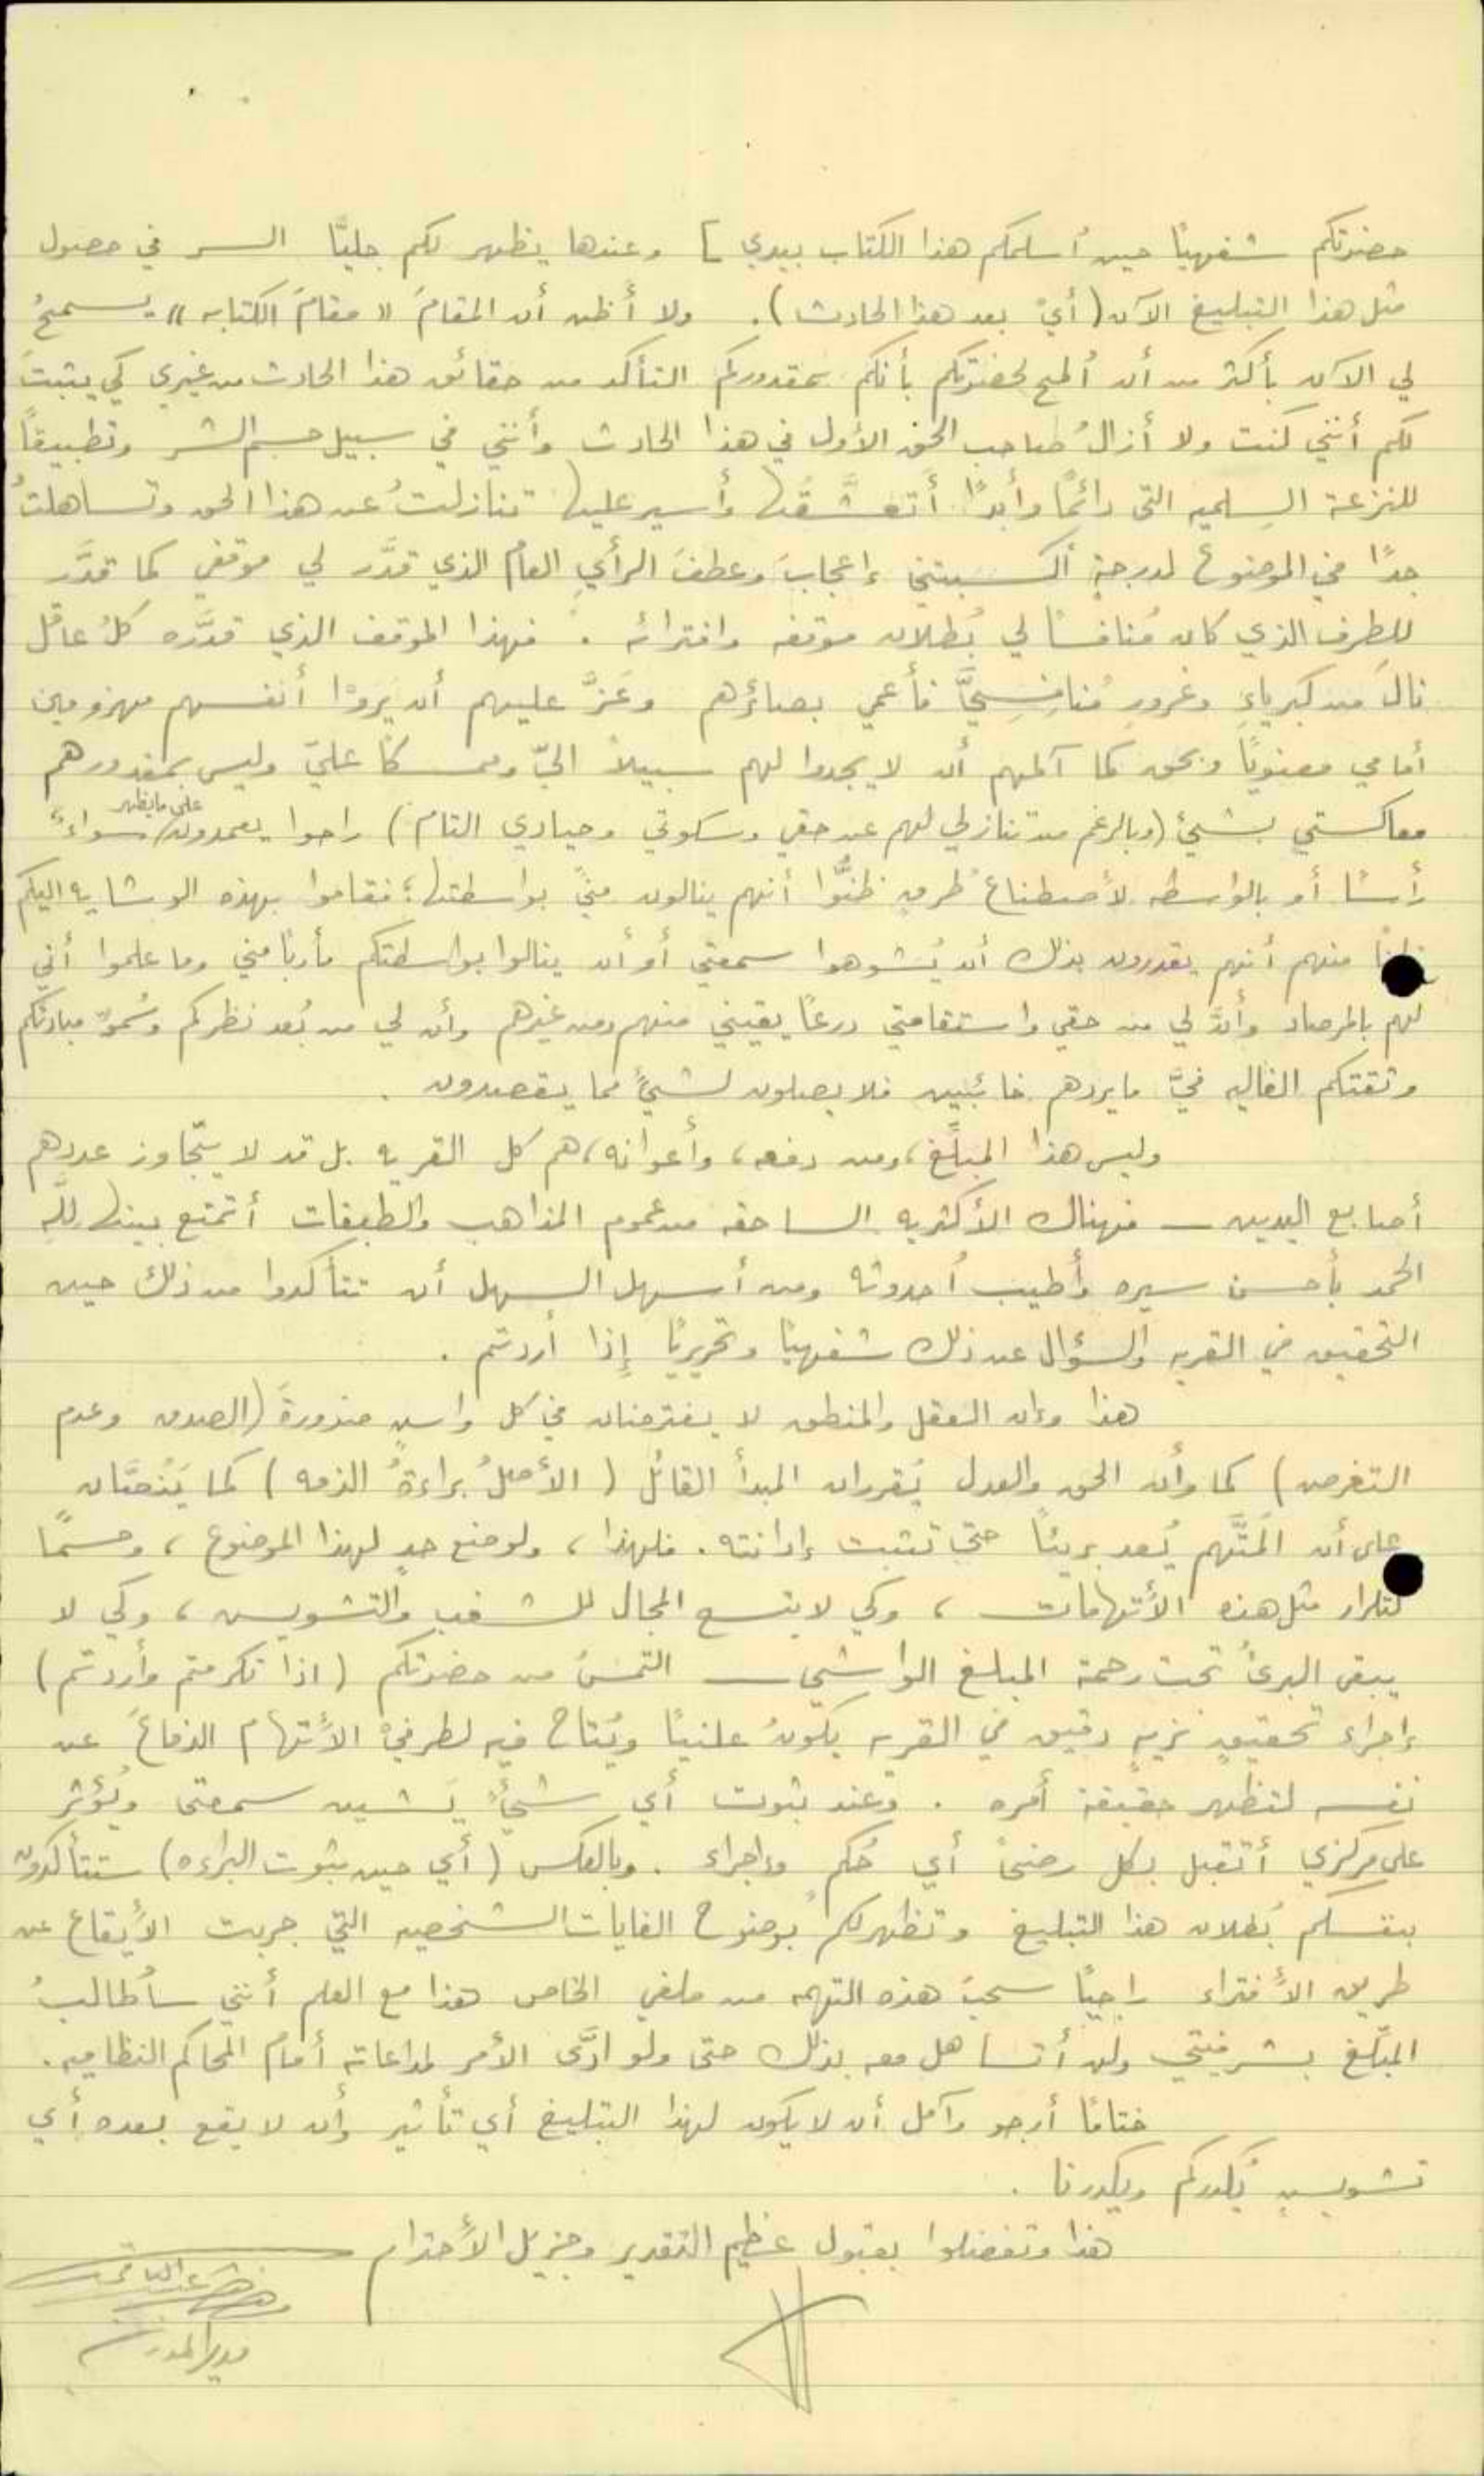 حضرتكم شفهيًا حين أسلمكم هذا الكتاب بيدي ] وعندها يظهر لكم جليًّا السر في حصول
مثل هذا التبليغ الآن (أي بعد هذا الحادث). ولا أظن أن المقامَ "مقامَ الكتابه" يسمحُ
لي الآن بأكثر من أن أُلمح لحضرتكم بأنكم بمقدوركم التأكد من حقائق هذا الحادث من غيري كي يثبتَ
لكم أنني كنت ولا أزالُ صاحب الحق الأول في هذا الحادث وأنني في سبيل حسم الشر وتطبيقاً
للنزعة السِلميه التي دائمًا وأبدًا أتعشَّقُها وأسير عليها تنازلتُ عن هذا الحق وتساهلتُ
جدًا في الموضوع لدرجةٍ أكسبتني إعجابَ وعطفَ الرأي العام الذي قدَّر لي موقفي كما قدَّر
للطرف الذي كان مُنافسًا لي بُطلان موقفه وافترائه . فهذا الموقف الذي قدَّره كلُ عاقل
نالَ من كبرياءِ وغرورِ مُنافِسِيَّ فأعمي بصائرهم وعَزَّ عليهم أن يَروْا أنفسهم مهزومين
أمامي معنويًا وبحق كما آلمهم أن لا يجدوا لهم سبيلاً اليّ وممسكًا عليّ وليس بمقدورهم
معاكستي بشيئ (وبالرغم من تنازلي لهم عن حقي وسكوتي وحيادي التام) راحوا يعمدون على ما يظهر سواءً
رأسًا أو بالواسطه لأصطناع طُرقٍ ظنُّوا أنهم ينالون منيّ بواسطتها؛ فقاموا بهذه الوشايه اليكم
ظنًا منهم أنهم يقدرون بذلك أن يُشوهوا سمعتي أو أن ينالوا بواسطتكم مأربًا مني وما علموا أني
لهم بالمرصاد وأنَّ لي من حقي واستقامتي درعًا يقيني منهم ومن غيرهم وأن لي من بُعد نظركم وسُموّ مبادئكم
وثقتكم الغاليه فيَّ ما يردهم خائبين فلا يصلون لشيئٍ مما يقصدون .
وليس هذا المبلِّغ، ومن دفعه، وأعوانه، هم كل القريه بل قد لا يتجاوز عددهم
أصابع اليدين ــ فهناك الأكثريه الساحقه من عموم المذاهب والطبقات أتمتع بينها للّه
الحمد بأحسن سيره وأطيب أُحدوثه ومن أسهل السهل أن تتأكدوا من ذلك حين
التحقيق في القريه والسؤال عن ذلك شفهيًا وتحريريًا إذا أردتم .
هذا وإن العقل والمنطق لا يفترضان في كل واشٍ ضرورةَ (الصدق وعدم
التغرض) كما وأن الحق والعدل يُقرران المبدأ القائل ( الأصلُ براءةُ الذمه ) كما يَنُصَّان
على أن المتَّهم يُعد بريئًا حتى تثبت إدانته. فلهذا، ولوضع حدٍ لهذا الموضوع ، وحسمًا
لتكرار مثل هذه الأتهامات ، وكي لا يتسع المجال للشغب والتشويس ، وكي لا
يبقى البرئُ تحت رحمة المبلغ الواشي ــ التمسُ من حضرتكم (اذا تكرمتم وأردتم)
إجراء تحقيقٍ نزيهٍ دقيق في القريه يكونُ علنيًا ويُتاح فيه لطرفيْ الأتهام الدفاعَ عن
نفسه لتظهر حقيقة أمره . وعند ثبوت أي شيئٍ يَشين سمعتي ويُؤثر
على مركزي أتقبل بكل رضىً أي حُكم وإجراء . وبالعكس (أي حين ثبوت البراءه) ستتأكدون
بنفسكم بُطلان هذا التبليغ وتظهر لكم بوضوح الغايات الشخصيه التي جربت الأيقاع عن
طريق الأفتراء راجيًا سحبَ هذه التهمه من ملفي الخاص هذا مع العلم أنني سأُطالبُ
المبلّغ بشرفيتي ولن أتساهل معه بذلك حتى ولو ادَّى الأمر لمداعاته أمام المحاكم النظاميه.
ختامًا أرجو وآمل أن لا يكون لهذا التبليغ أي تأثير وأن لا يقع بعده أي
تشويسٍ يُكدركم ويكدرنا .
هذا وتفضلوا بقبول عظيم التقدير وجزيل الأحترام
مدير المدرسه